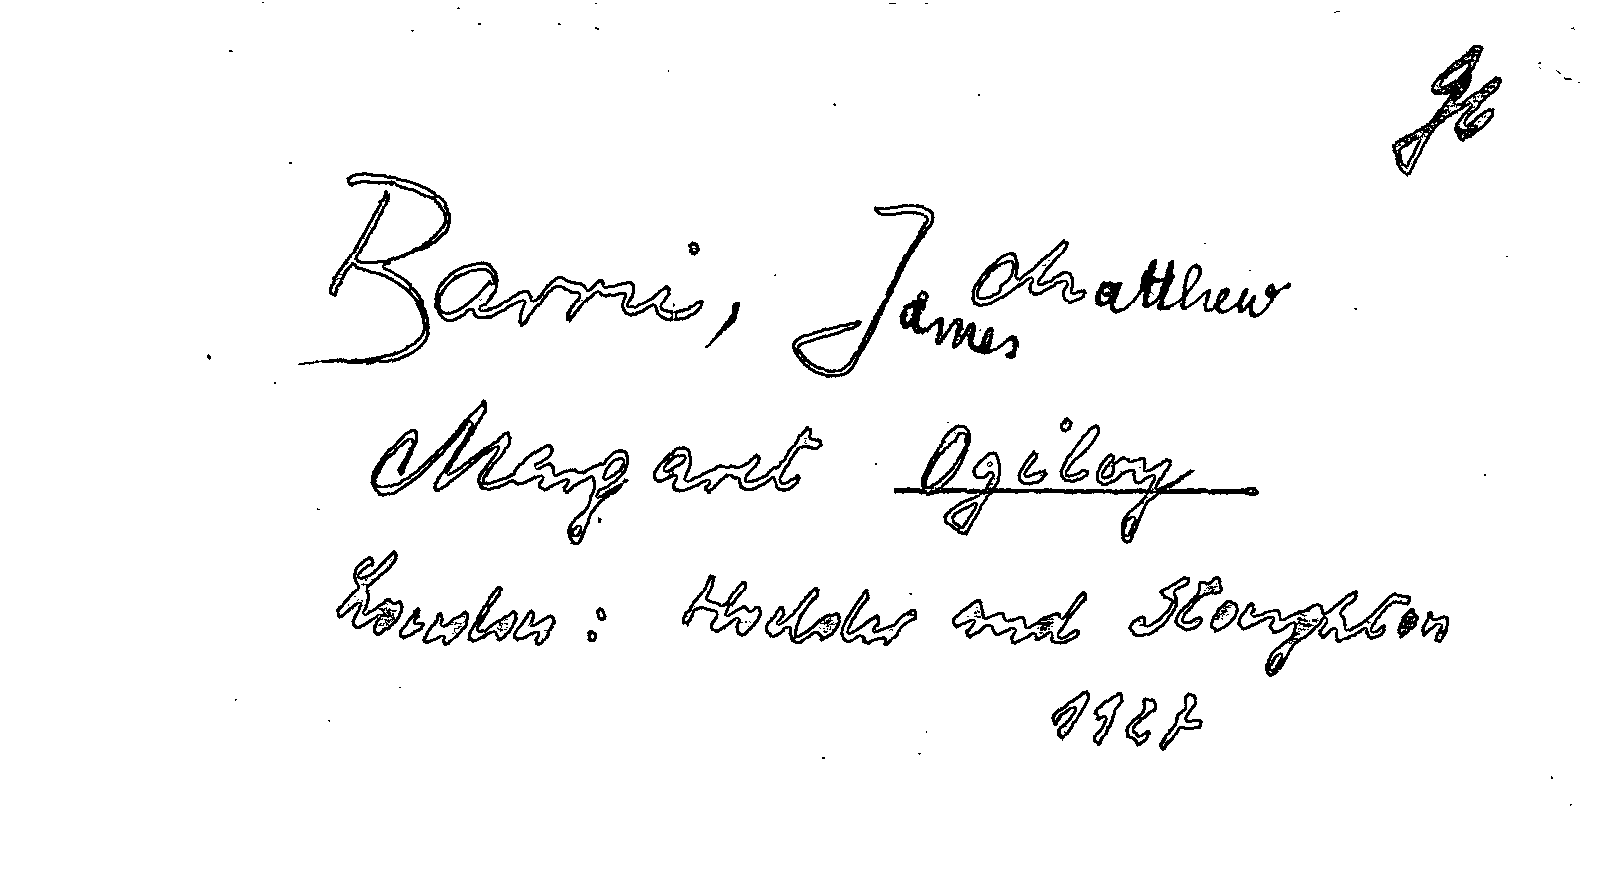 Barri, James Matthew
Margaret Ogilvy
London: Hodder and Stoughton
1927